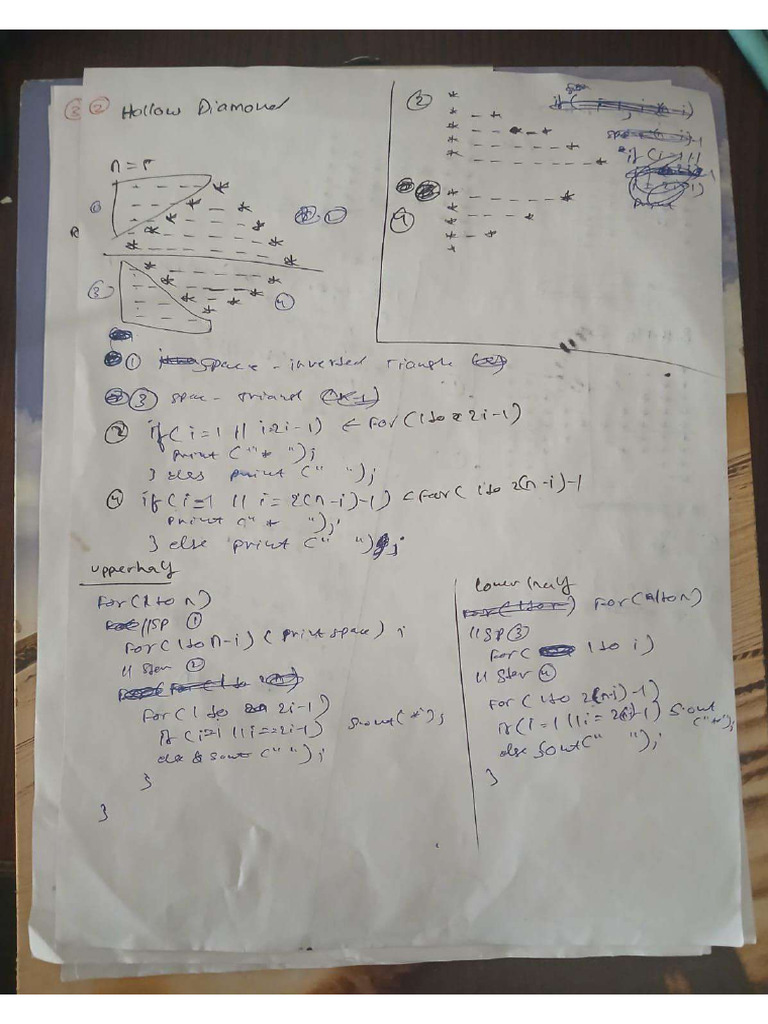 ③ ② Hollow Diamond
n = 5
① ②
③ ④
②
*
* _ *
* _ _ _ *
* _ _ _ _ _ *
* _ _ _ _ _ *
④ * _ _ _ *
* _ *
*
① space - inverted triangle
③ spac - triand
② if( i=1 || i=2i-1) < For( 1 to 2i-1)
print ("* ");
} eles print (" ");
④ if( i=1 || i = 2(n-i)-1) < For( 1 to 2(n-i)-1
print (" * ");
} else print (" ");
upperhalf
For( 1 to n)
//SP ①
For( 1 to n-i) ( print space) ;
// Star ②
For( 1 to 2i-1)
if( i=1 || i==2i-1) Sout(*);
else Sout (" ");
}
}
Lower half
For( 1 to n)
// SP ③
For( 1 to i)
// Star ④
For( 1 to 2(n-i)-1)
if( i=1 || i= 2(n-i)-1) Sout
("*");
else Sout(" ");
}